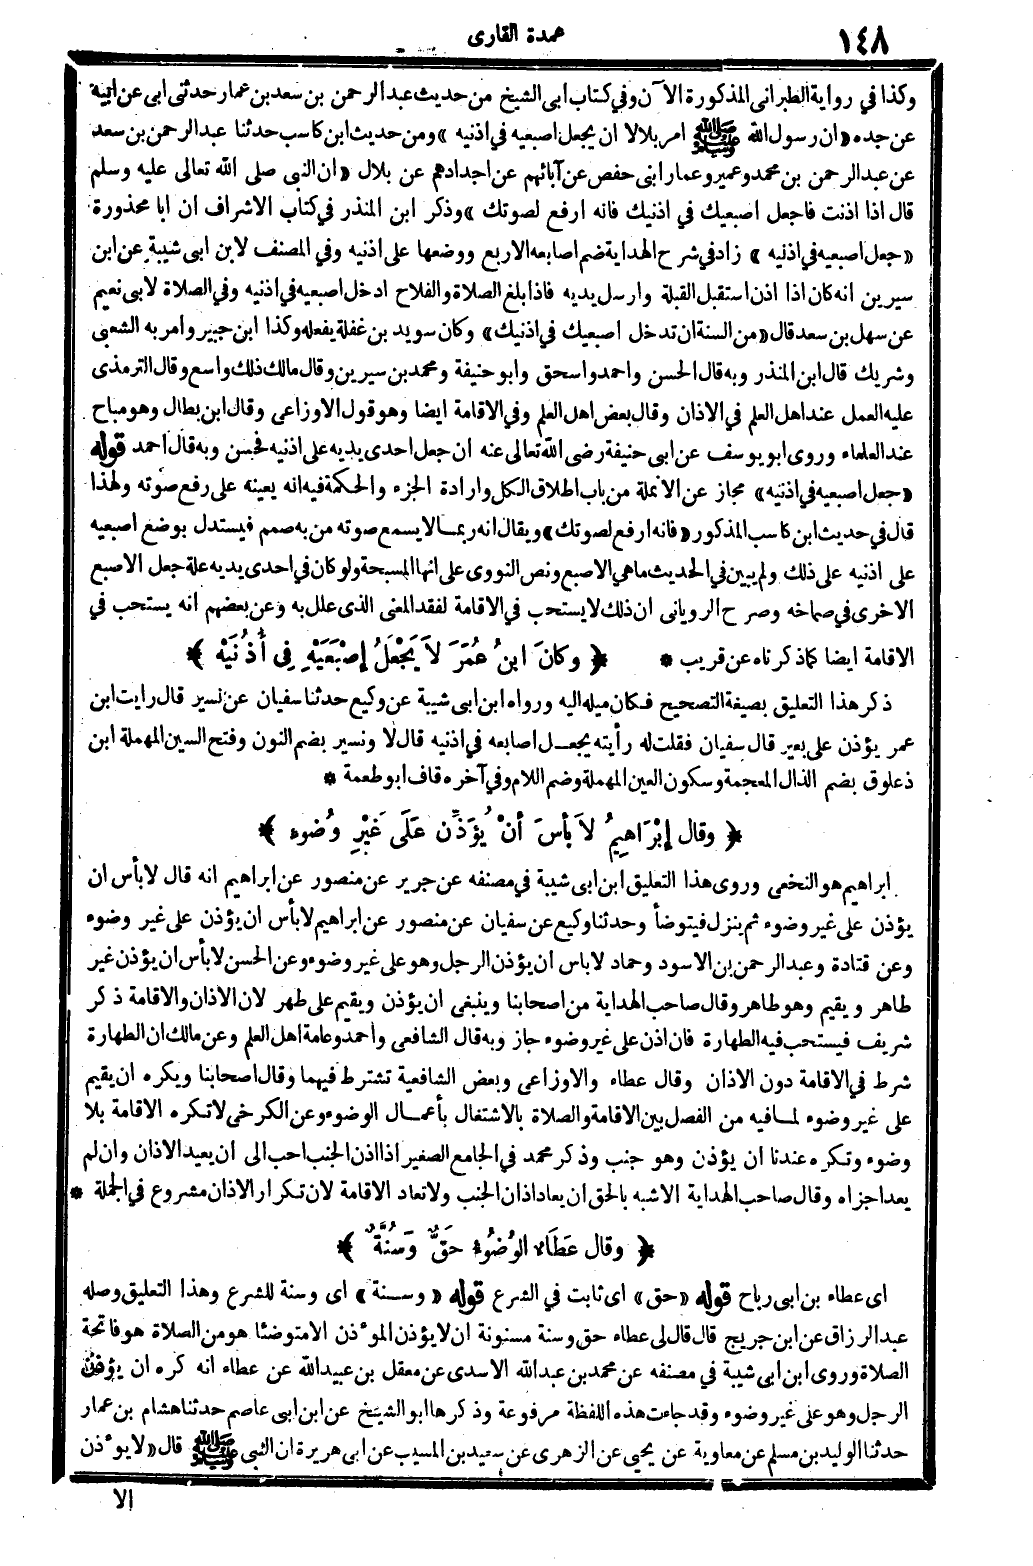 ١٤٨
عمدة القارى
وكذا في رواية الطبرانى المذكورة الآن وفي كتاب ابى الشيخ من حديث عبد الرحمن بن سعد بن عمار حدثنى ابى عن ابيه
عن جده «ان رسول الله ﷺ امر بلالا ان يجعل اصبعيه في اذنيه» ومن حديث ابن كاسب حدثنا عبد الرحمن بن سعد
عن عبد الرحمن بن محمد وعمير وعمار ابنى حفص عن آبائهم عن اجدادهم عن بلال «ان النبى صلى الله تعالى عليه وسلم
قال اذا اذنت فاجعل اصبعيك في اذنيك فانه ارفع لصوتك» وذكر ابن المنذر في كتاب الاشراف ان ابا محذورة
«جعل اصبعيه في اذنيه» زاد في شرح الهداية ضم اصابعه الاربع ووضعها على اذنيه وفي المصنف لابن ابى شيبة عن ابن
سيرين انه كان اذا اذن استقبل القبلة وارسل يديه فاذا بلغ الصلاة والفلاح ادخل اصبعيه في اذنيه وفي الصلاة لابى نعيم
عن سهل بن سعد قال «من السنة ان تدخل اصبعيك في اذنيك» وكان سويد بن غفلة يفعله وكذا ابن جبير وامر به الشعبى
وشريك قال ابن المنذر وبه قال الحسن واحمد واسحق وابو حنيفة ومحمد بن سيرين وقال مالك ذلك واسع وقال الترمذى
عليه العمل عند اهل العلم في الاذان وقال بعض اهل العلم وفي الاقامة ايضا وهو قول الاوزاعى وقال ابن بطال وهو مباح
عند العلماء وروى ابو يوسف عن ابى حنيفة رضى الله تعالى عنه ان جعل احدى يديه على اذنيه فحسن وبه قال احمد قوله
«جعل اصبعيه في اذنيه» مجاز عن الانملة من باب اطلاق الكل وارادة الجزء والحكمة فيه انه يعينه على رفع صوته ولهذا
قال في حديث ابن كاسب المذكور «فانه ارفع لصوتك» ويقال انه ربمـا لا يسمع صوته من به صمم فيستدل بوضع اصبعيه
على اذنيه على ذلك ولم يبين في الحديث ماهي الاصبع ونص النووى على انها المسبحة ولو كان في احدى يديه علة جعل الاصبع
الاخرى في صماخه وصرح الرويانى ان ذلك لا يستحب في الاقامة لفقد المعنى الذى علل به وعن بعضهم انه يستحب في
الاقامة ايضا كما ذكرناه عن قريب * ﴿ وكانَ ابنُ عُمَرَ لاَ يَجْعَلُ إصْبَعَيْهِ فِى أُذُنَيْهِ ﴾
ذكر هذا التعليق بصيغة التصحيح فكان ميله اليه ورواه ابن ابى شيبة عن وكيع حدثنا سفيان عن نسير قال رايت ابن
عمر يؤذن على بعير قال سفيان فقلت له رأيته يجعـل اصابعه في اذنيه قال لا ونسير بضم النون وفتح السين المهملة ابن
ذعلوق بضم الذال المعجمة وسكون العين المهملة وضم اللام وفي آخره قاف ابو طعمة *
﴿ وقال إبْرَاهِيمُ لاَ بأسَ أنْ يُؤَذِّن عَلَى غَيْرِ وُضُوء ﴾
ابراهيم هو النخعى وروى هذا التعليق ابن ابى شيبة في مصنفه عن جرير عن منصور عن ابراهيم انه قال لا بأس ان
يؤذن على غير وضوء ثم ينزل فيتوضأ وحدثنا وكيع عن سفيان عن منصور عن ابراهيم لا بأس ان يؤذن على غير وضوء
وعن قتادة وعبد الرحمن بن الاسود وحماد لا باس ان يؤذن الرجل وهو على غير وضوء وعن الحسن لا بأس ان يؤذن غير
طاهر ويقيم وهو طاهر وقال صاحب الهداية من اصحابنا وينبغى ان يؤذن ويقيم على طهر لان الاذان والاقامة ذكر
شريف فيستحب فيه الطهارة فان اذن على غير وضوء جاز وبه قال الشافعى واحمد وعامة اهل العلم وعن مالك ان الطهارة
شرط في الاقامة دون الاذان وقال عطاء والاوزاعى وبعض الشافعية تشترط فيهما وقال اصحابنا ويكره ان يقيم
على غير وضوء لمـا فيه من الفصل بين الاقامة والصلاة بالاشتغال بأعمـال الوضوء وعن الكرخى لا تكره الاقامة بلا
وضوء وتكره عندنا ان يؤذن وهو جنب وذكر محمد في الجامع الصغير اذا اذن الجنب احب الى ان يعيد الاذان وان لم
يعد اجزاه وقال صاحب الهداية الاشبه بالحق ان يعاد اذان الجنب ولا تعاد الاقامة لان تكرار الاذان مشروع في الجملة *
﴿ وقال عَطَاء الوُضُوءُ حَقٌّ وَسُنَّةٌ ﴾
اى عطاء بن ابى رباح قوله «حق» اى ثابت في الشرع قوله «وسـنة» اى وسنة للشرع وهذا التعليق وصله
عبد الرزاق عن ابن جريج قال قال لى عطاء حق وسنة مسنونة ان لا يؤذن المؤذن الا متوضئا هو من الصلاة هو فاتحة
الصلاة وروى ابن ابى شيبة في مصنفه عن محمد بن عبد الله الاسدى عن معقل بن عبيد الله عن عطاء انه كره ان يؤذن
الرجل وهو على غير وضوء وقد جاءت هذه اللفظة مرفوعة وذكرها ابو الشيخ عن ابن ابى عاصم حدثنا هشام بن عمار
حدثنا الوليد بن مسلم عن معاوية عن يحيى عن الزهرى عن سعيد بن المسيب عن ابى هريرة ان النبى ﷺ قال «لا يؤذن
الا